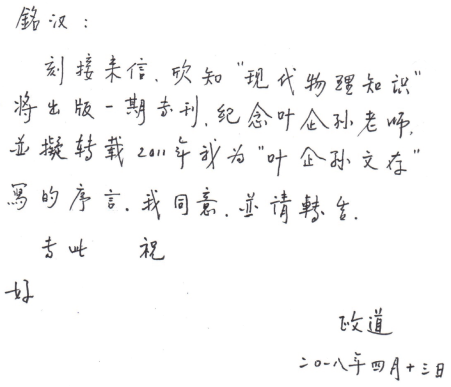 銘汉：
刻接来信，欣知“现代物理知识”
将出版一期专刊，纪念叶企孙老师，
並擬转载2011年我为“叶企孙文存”
写的序言。我同意，並请轉告。
专此　祝
好
政道
二〇一八年四月十三日